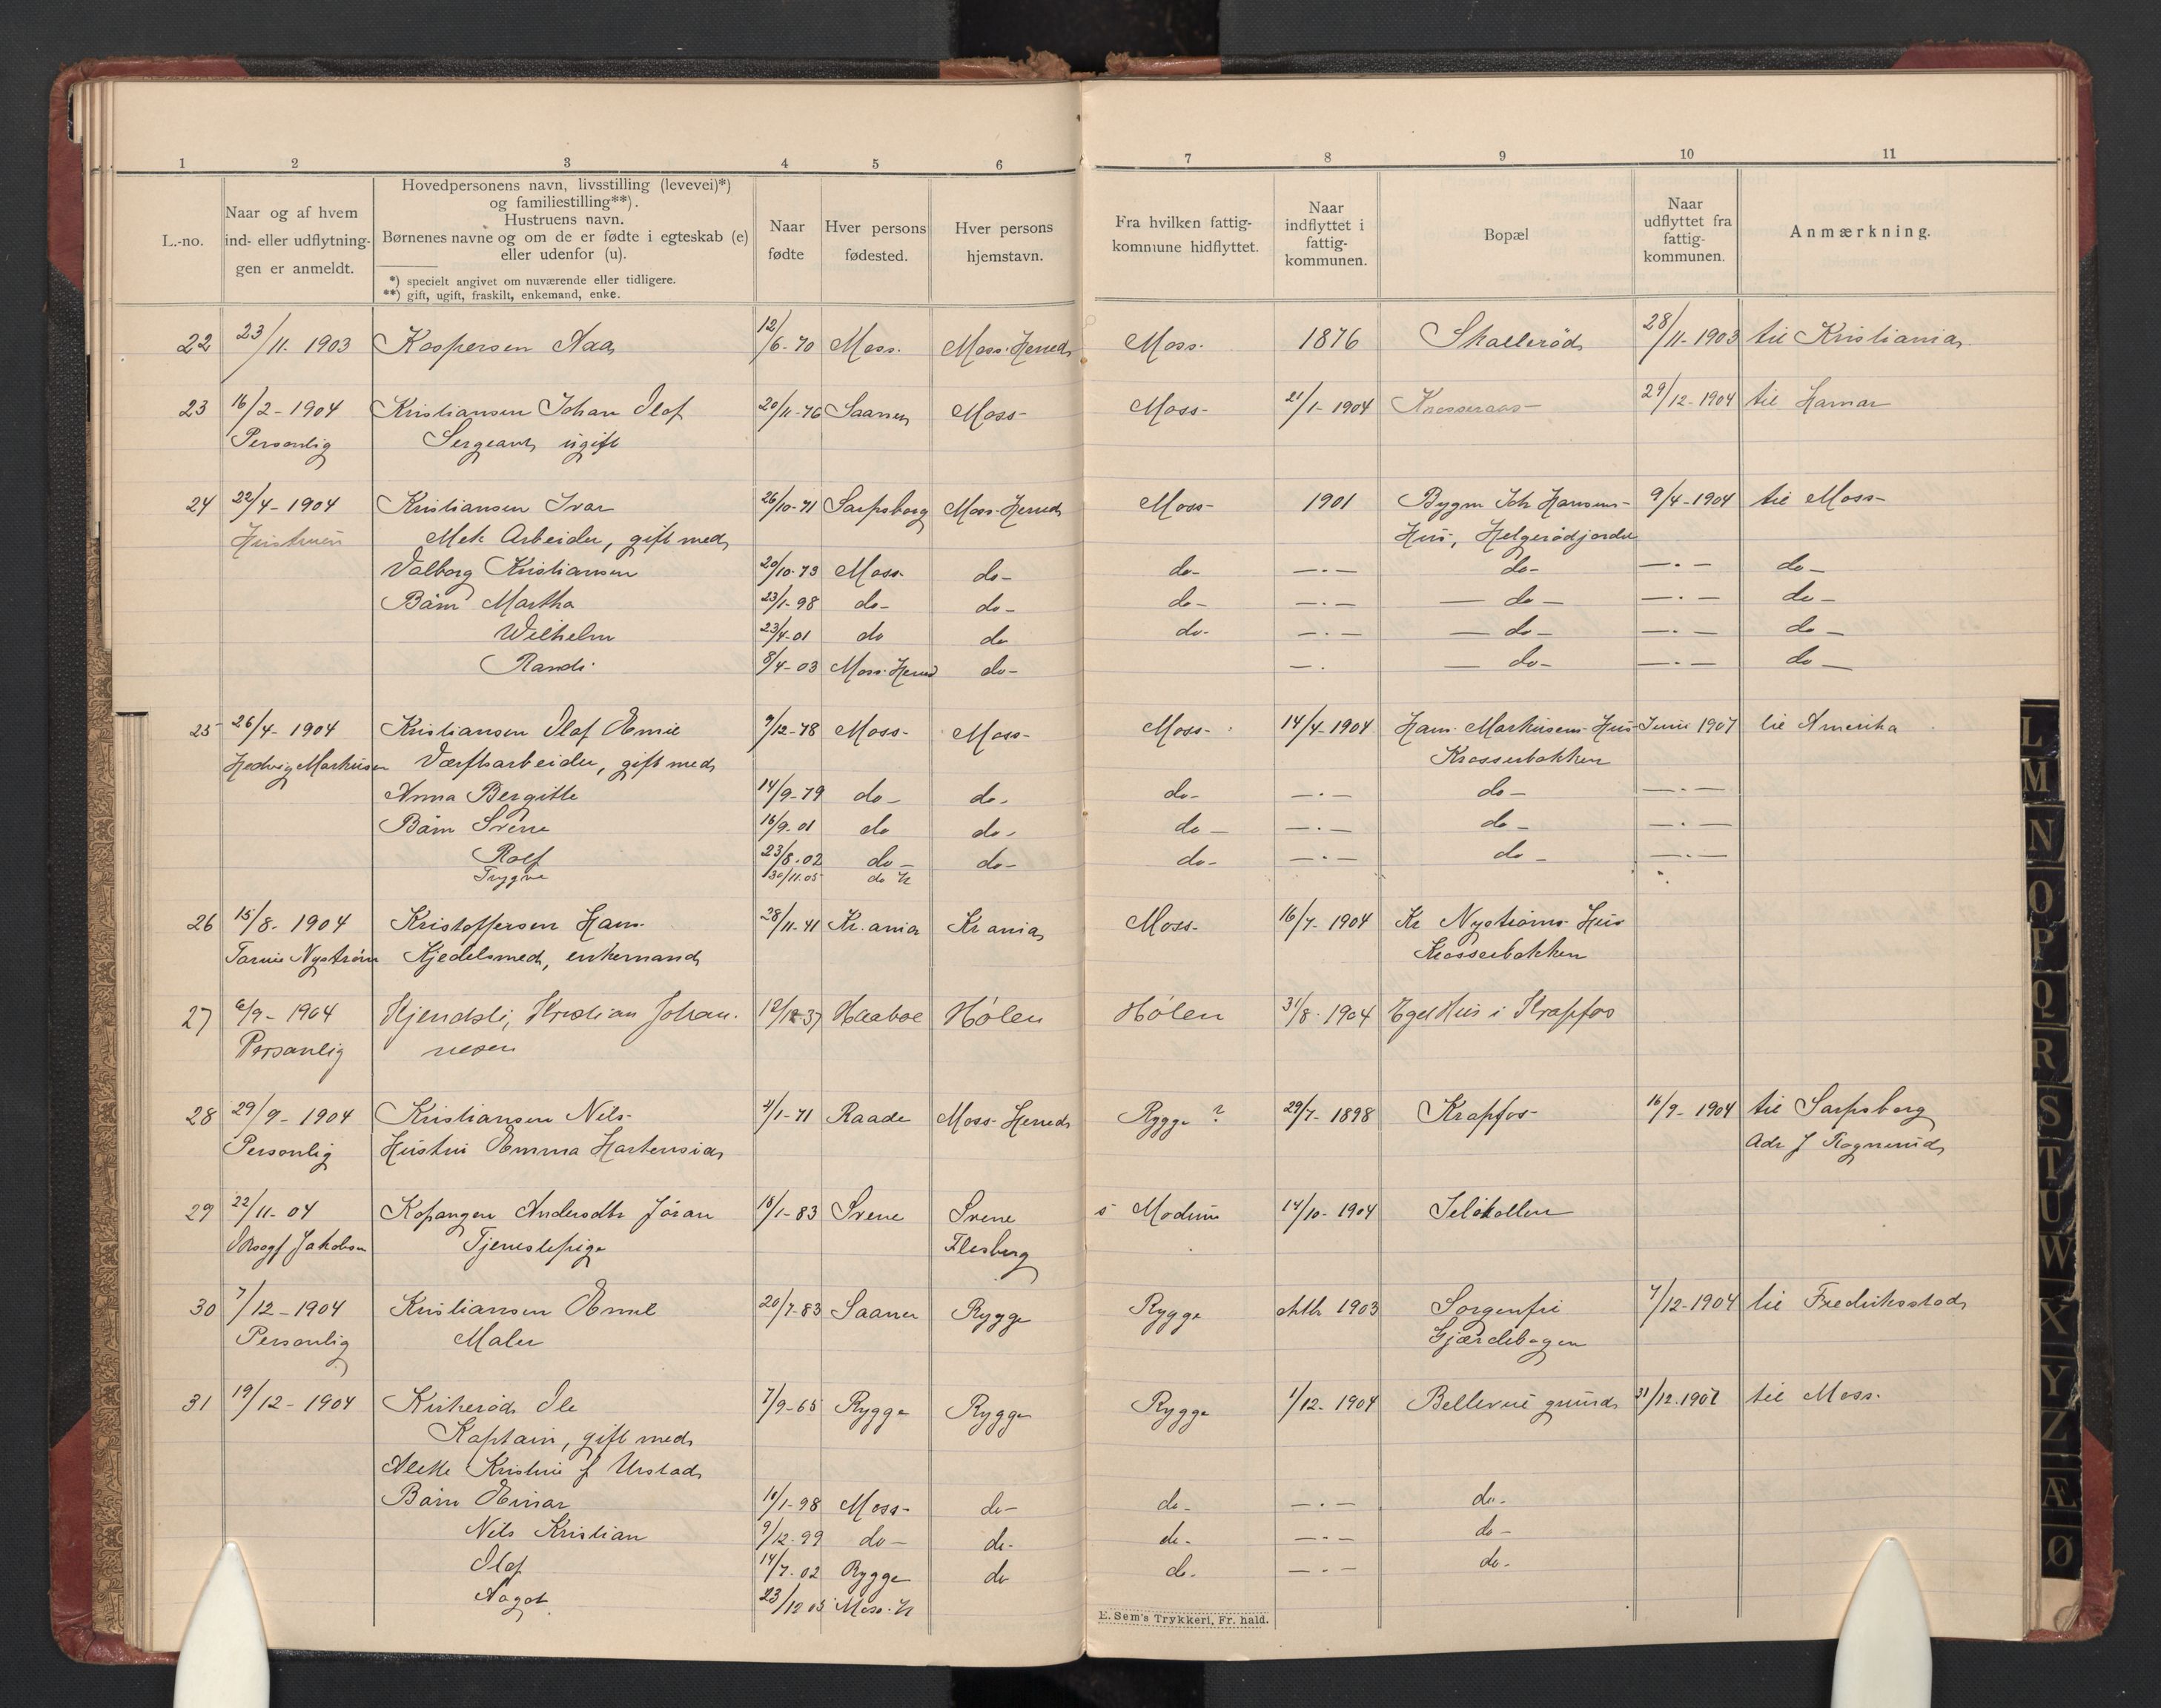 1 2 3 4 5 6 7 8 9 10 11
L.-no.
Naar og af hvem
ind- eller udflytnin-
gen er anmeldt.
Hovedpersonens navn, livsstilling (levevei)*)
og familiestilling**).
Hustruens navn.
Børnenes navne og om de er fødte i egteskab (e)
eller udenfor (u).
*) specielt angivet om nuværende eller tidligere.
**) gift, ugift, fraskilt, enkemand, enke.
Naar
fødte
Hver persons
fødested.
Hver persons
hjemstavn.
Fra hvilken fattig-
kommune hidflyttet.
Naar
indflyttet i
fattig-
kommunen.
Bopæl
Naar
udflyttet fra
fattig-
kommunen.
Anmærkning.
22 23/11-1903 Kaspersen Aas 12/6-70 Moss. Moss-Herred Moss. 1876 Skallerød 28/11-1903 til Kristiania
23 16/2-1904 Kristiansen Johan Olaf 20/11-76 Saaner Moss- Moss- 21/1-1904 Krosseraas 29/12-1904 til Hamar
Personlig Sergeant, ugift
24 22/4-1904 Kristiansen Ivar 26/10-71 Sarpsborg Moss-Herred Moss- 1901 Bygm Joh Hansens- 9/4-1904 til Moss-
Hustruen Mek Arbeider, gift med Hus, Helgerødjordet
Valborg Kristiansen 20/10-73 Moss- do- do- —.— do- —.— do-
Børn Martha 23/1-98 do- do- do- —.— — do — —.— do-
Wilhelm 23/4-01 do do do- —.— — do- —.— do-
Randi 8/4-03 Moss-Herred do- —. — do- —.— do —
25 26/4-1904 Kristiansen Olaf Emil 9/12-78 Moss- Moss- Moss- 14/4-1904 Hans Markusens Hus Juni 1907 til Amerika
Hedvig Markusen Værftsarbeider, gift med Krosserbakken
Anna Bergitte 14/9-79 do- do- do- —.— do- —.—
Børn Sverre 16/9-01 do do- do — —.— do- —.—
Rolf 23/8-02 do — do- do- —.— do- —.—
Trygve 30/11.05 do H
26 15/8-1904 Kristoffersen Hans 28/11-41 Kr.ania Kr ania Moss- 16/7-1904 Kr Nystrøms Hus
Nystrøm Kjedelsmed, enkemand Krosserbakken
27 6/9-1904 Hjendsli, Kristian Johan- 12/12-37 Haabøl Hølen Hølen 31/8-1904 Eget Hus i Krapfos
Personlig nesen
28 29/9-1904 Kristiansen Nils- 4/1-71 Raade Moss-Herred Rygge ? 29/7-1898 Krapfos- 16/9-1904 til Sarpsborg
Personlig Hustru Emma Hartensia Adr J Rognerud
29 22/11-04 Kopangen Andersdtr Jøran 18/1-83 Svene Svene s Modum 14/10-1904 Jeløkollen
Skogf Jakobsen Tjenestepige Flesberg
30 7/12-1904 Kristiansen Emil 20/7-83 Saaner Rygge Rygge oktb 1903 Sorgenfri 7/12-1904 til Fredriksstad
Personlig Maler Gjærdebogen
31 19/12-1904 Kirkerød Ole 7/9-65 Rygge Rygge Rygge 1/12-1904 Bellevue grund 31/12.1907 til Moss.
Kaptain, gift med
Alette Kristine f Urstad
Børn Einar 16/1-98 Moss- do- do- —.— do-
Nils Kristian 9/12-99 do- do- do- —.— do-
Olaf 14/7-02 Rygge do do- —.— do-
Aagot 23/12 05 Moss-H
E. Sem's Trykkeri, Fr. hald.
L
M
N
O
P
Q
R
S
T
U
W
X
Y
Z
Æ
Ø